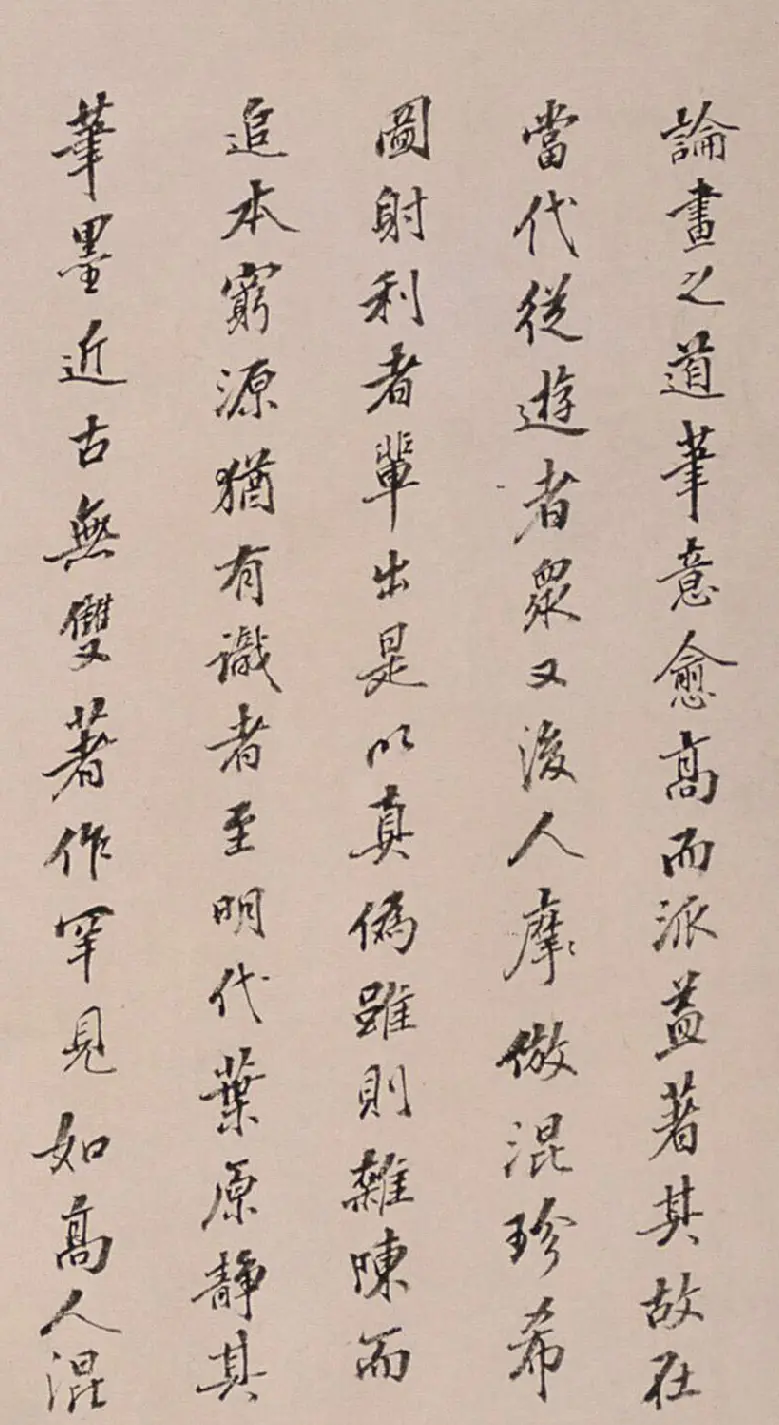 論畫之道筆意愈高而派益著其故在
當代從遊者眾又後人摩倣混珍希
圖射利者輩出是以真偽雖則雜陳而
追本窮源猶有識者至明代葉原靜其
筆墨近古無雙著作罕見如高人混